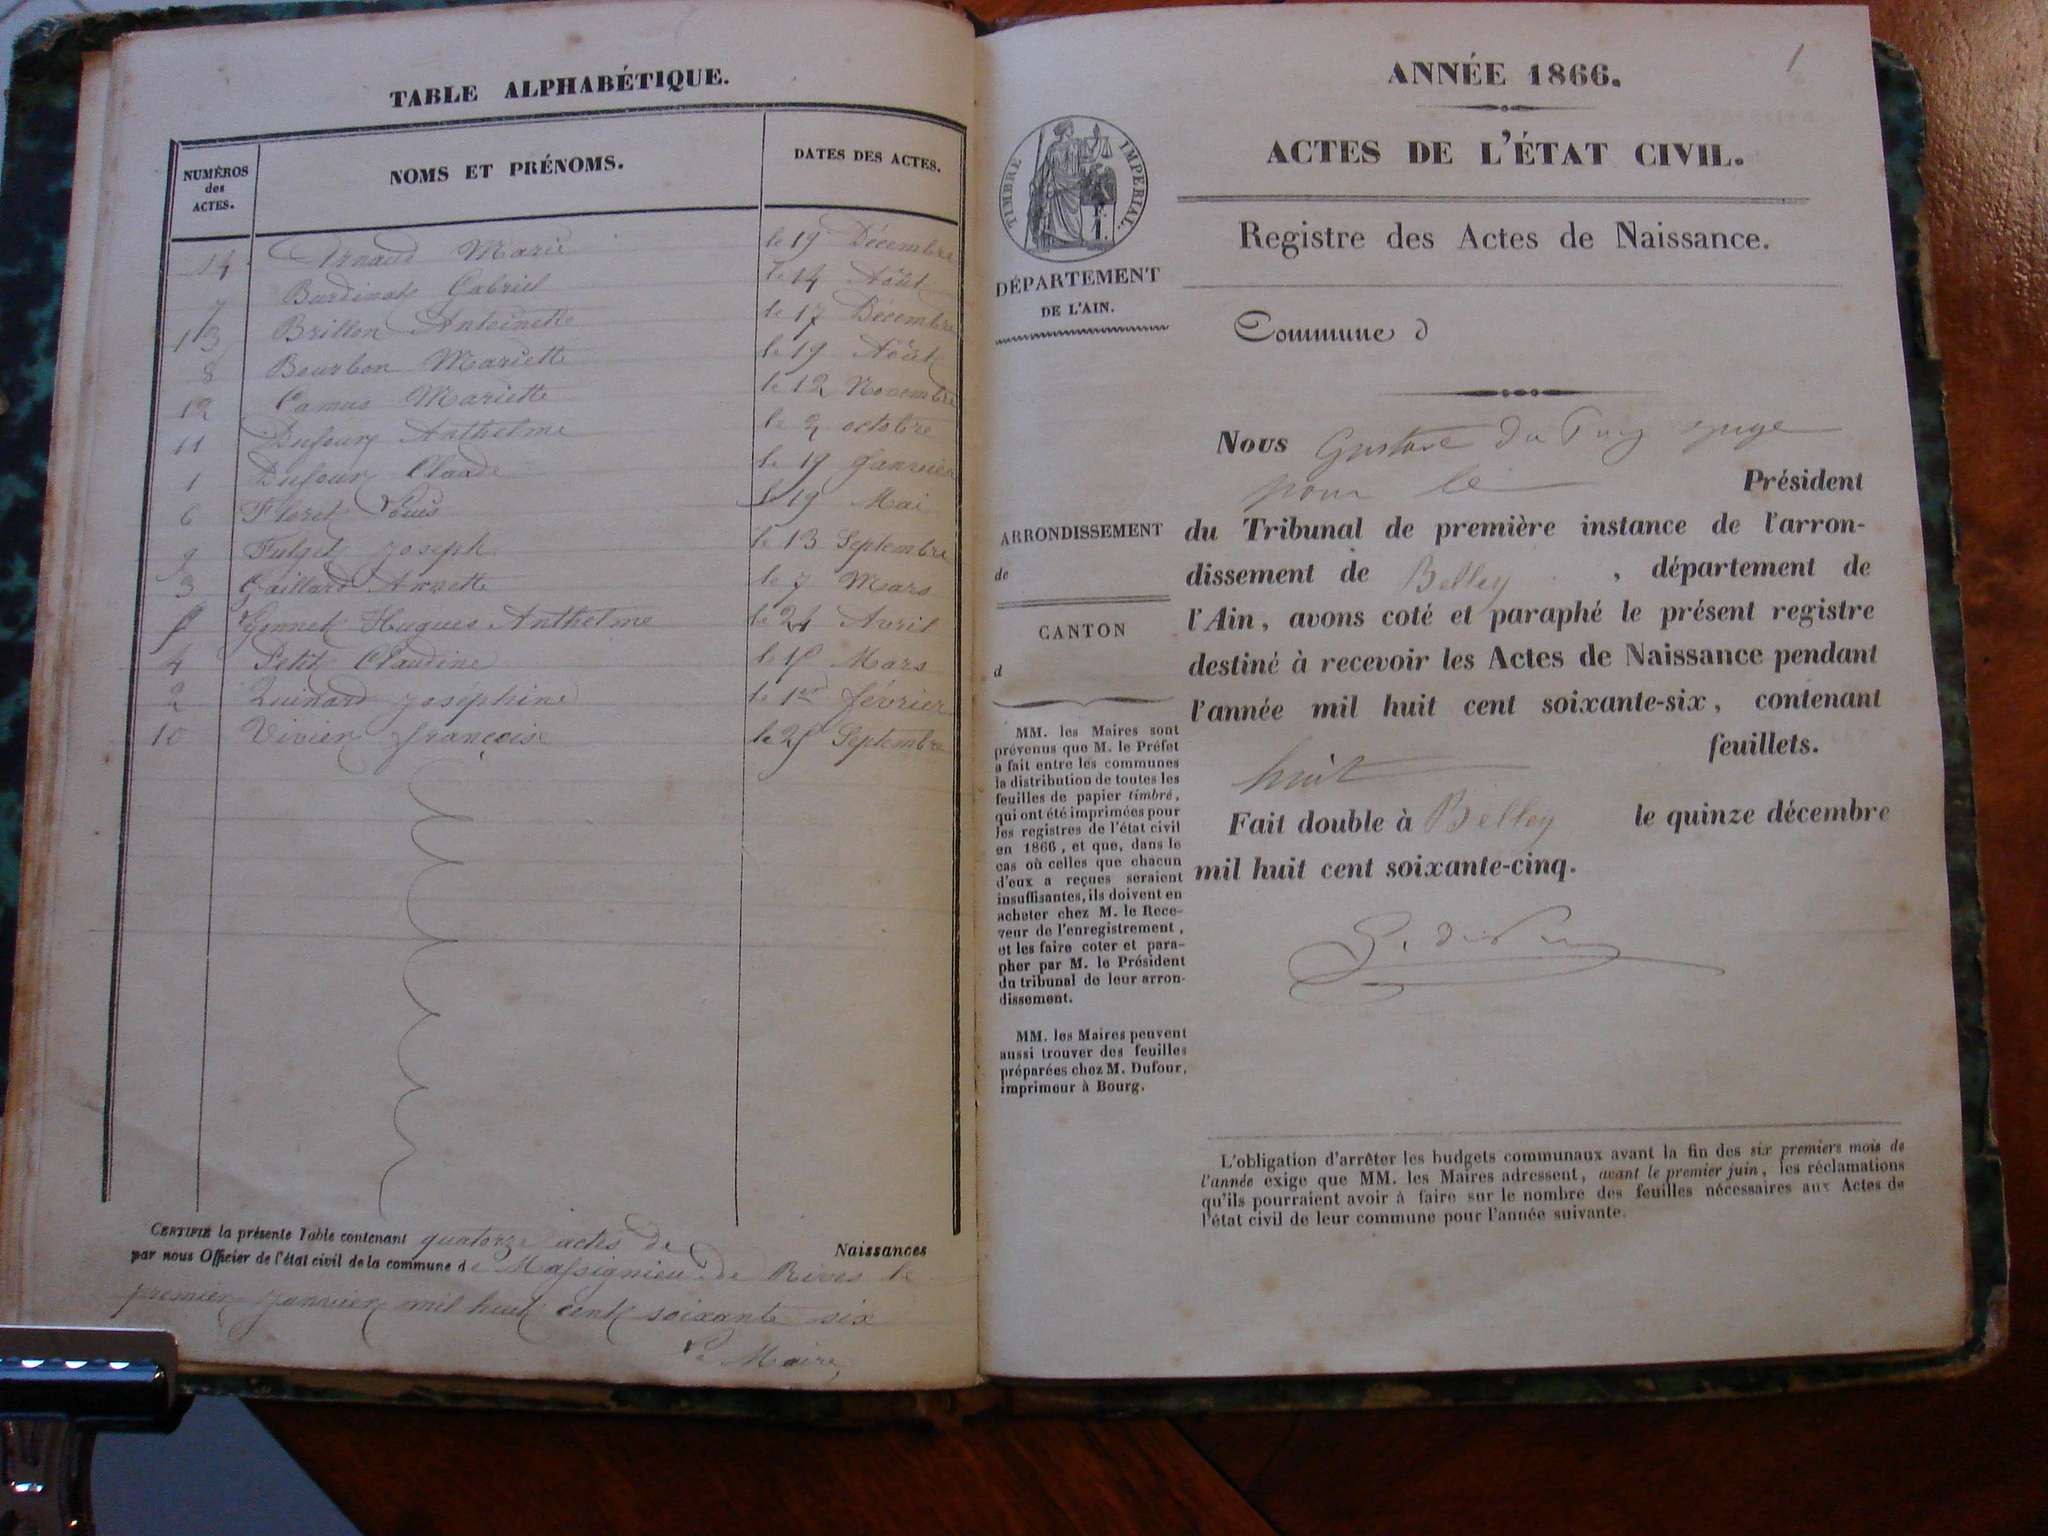 TABLE ALPHABÉTIQUE.
NUMÉROS des ACTES. NOMS ET PRÉNOMS. DATES DES ACTES.
14 Arnaud Marie le 19 Décembre
7 Burdinat Gabriel le 14 Août
13 Brillon Antoinette le 17 Décembre
8 Bourbon Mariette le 19 Août
12 Camus Mariette le 12 Novembre
11 Dufour Anthelme le 2 octobre
1 Dufour Claude le 19 Janvier
6 Floret Louis le 19 Mai
9 Fulget Joseph le 13 Septembre
3 Gaillard Annette le 7 Mars
5 Gonnet Hugues Anthelme le 24 Avril
4 Petit Claudine le 15 Mars
2 Quinard Joséphine le 1er février
10 Vivier françoise le 25 Septembre
CERTIFIÉ la présente Table contenant quatorze actes de Naissances
par nous Officier de l'état civil de la commune de Massignieu de Rives le
premier Janvier mil huit cent soixante six
Le Maire,
1
ANNÉE 1866.
ACTES DE L'ÉTAT CIVIL.
Registre des Actes de Naissance.
TIMBRE IMPERIAL.
DÉPARTEMENT
DE L'AIN.
Commune d
ARRONDISSEMENT
de
CANTON
d
MM. les Maires sont
prévenus que M. le Préfet
a fait entre les communes
la distribution de toutes les
feuilles de papier timbré,
qui ont été imprimées pour
les registres de l'état civil
en 1866, et que, dans le
cas où celles que chacun
d'eux a reçues seraient
insuffisantes, ils doivent en
acheter chez M. le Rece-
veur de l'enregistrement,
et les faire coter et para-
pher par M. le Président
du tribunal de leur arron-
dissement.
MM. les Maires peuvent
aussi trouver des feuilles
préparées chez M. Dufour,
imprimeur à Bourg.
Nous Gustave du Puy juge
pour le Président
du Tribunal de première instance de l'arron-
dissement de Belley, département de
l'Ain, avons coté et paraphé le présent registre
destiné à recevoir les Actes de Naissance pendant
l'année mil huit cent soixante-six, contenant
huit feuillets.
Fait double à Belley le quinze décembre
mil huit cent soixante-cinq.
G. du Puy
L'obligation d'arrêter les budgets communaux avant la fin des six premiers mois de
l'année exige que MM. les Maires adressent, avant le premier juin, les réclamations
qu'ils pourraient avoir à faire sur le nombre des feuilles nécessaires aux Actes de
l'état civil de leur commune pour l'année suivante.